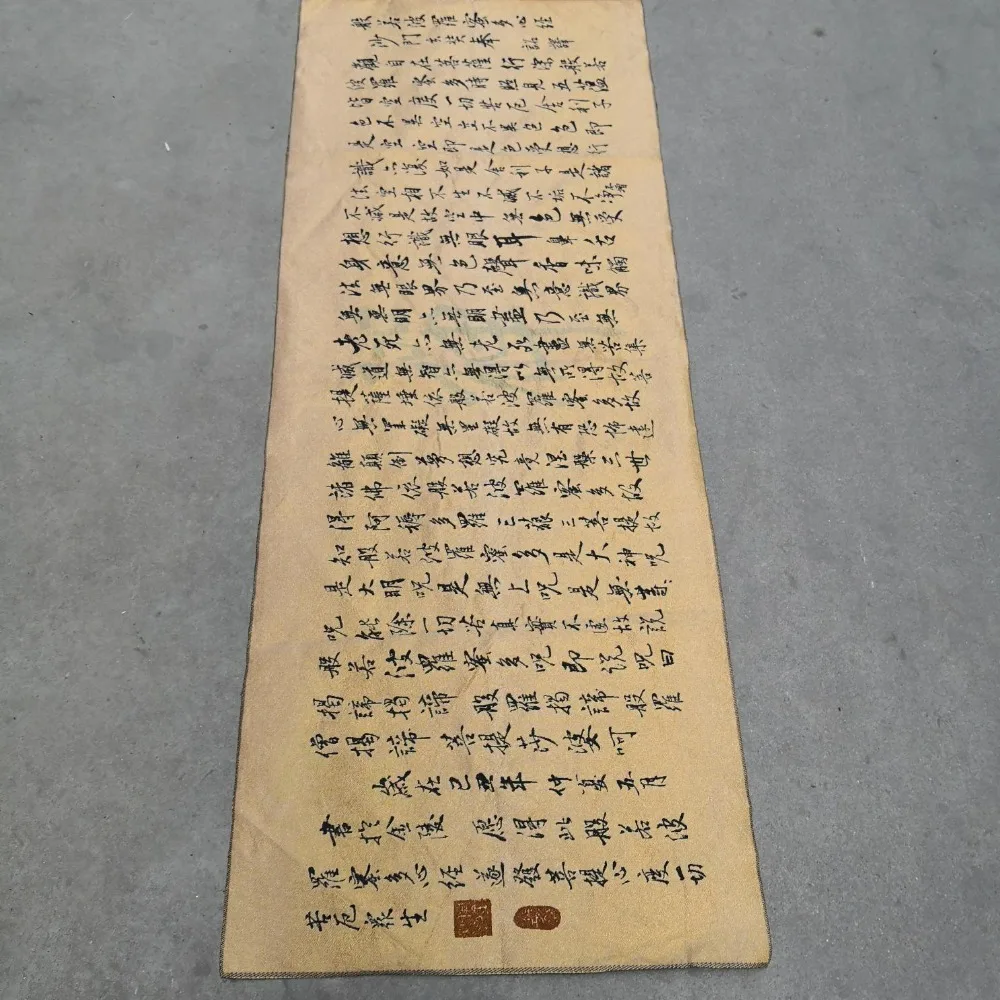 般若波羅蜜多心經
沙門玄奘奉 詔譯
觀自在菩薩行深般若
波羅蜜多時照見五蘊
皆空度一切苦厄舍利子
色不異空空不異色色即
是空空即是色受想行
識亦復如是舍利子是諸
法空相不生不滅不垢不淨
不減是故空中無色無受
想行識無眼耳鼻舌
身意無色聲香味觸
法無眼界乃至無意識界
無無明亦無明盡乃至無
老死亦無老死盡無苦集
滅道無智亦無得以無所得故菩
提薩埵依般若波羅蜜多故
心無罣礙無罣礙故無有恐怖遠
離顛倒夢想究竟涅槃三世
諸佛依般若波羅蜜多故
得阿耨多羅三藐三菩提故
知般若波羅蜜多是大神呪
是大明呪是無上呪是無等
呪能除一切苦真實不虛故說
般若波羅蜜多呪即說呪曰
揭諦揭諦 般羅揭諦 般羅
僧揭諦 菩提莎婆呵
歲在己丑年 仲夏五月
書於金陵 愿得此般若波
羅蜜多心經遂發菩提心度一切
苦厄眾生